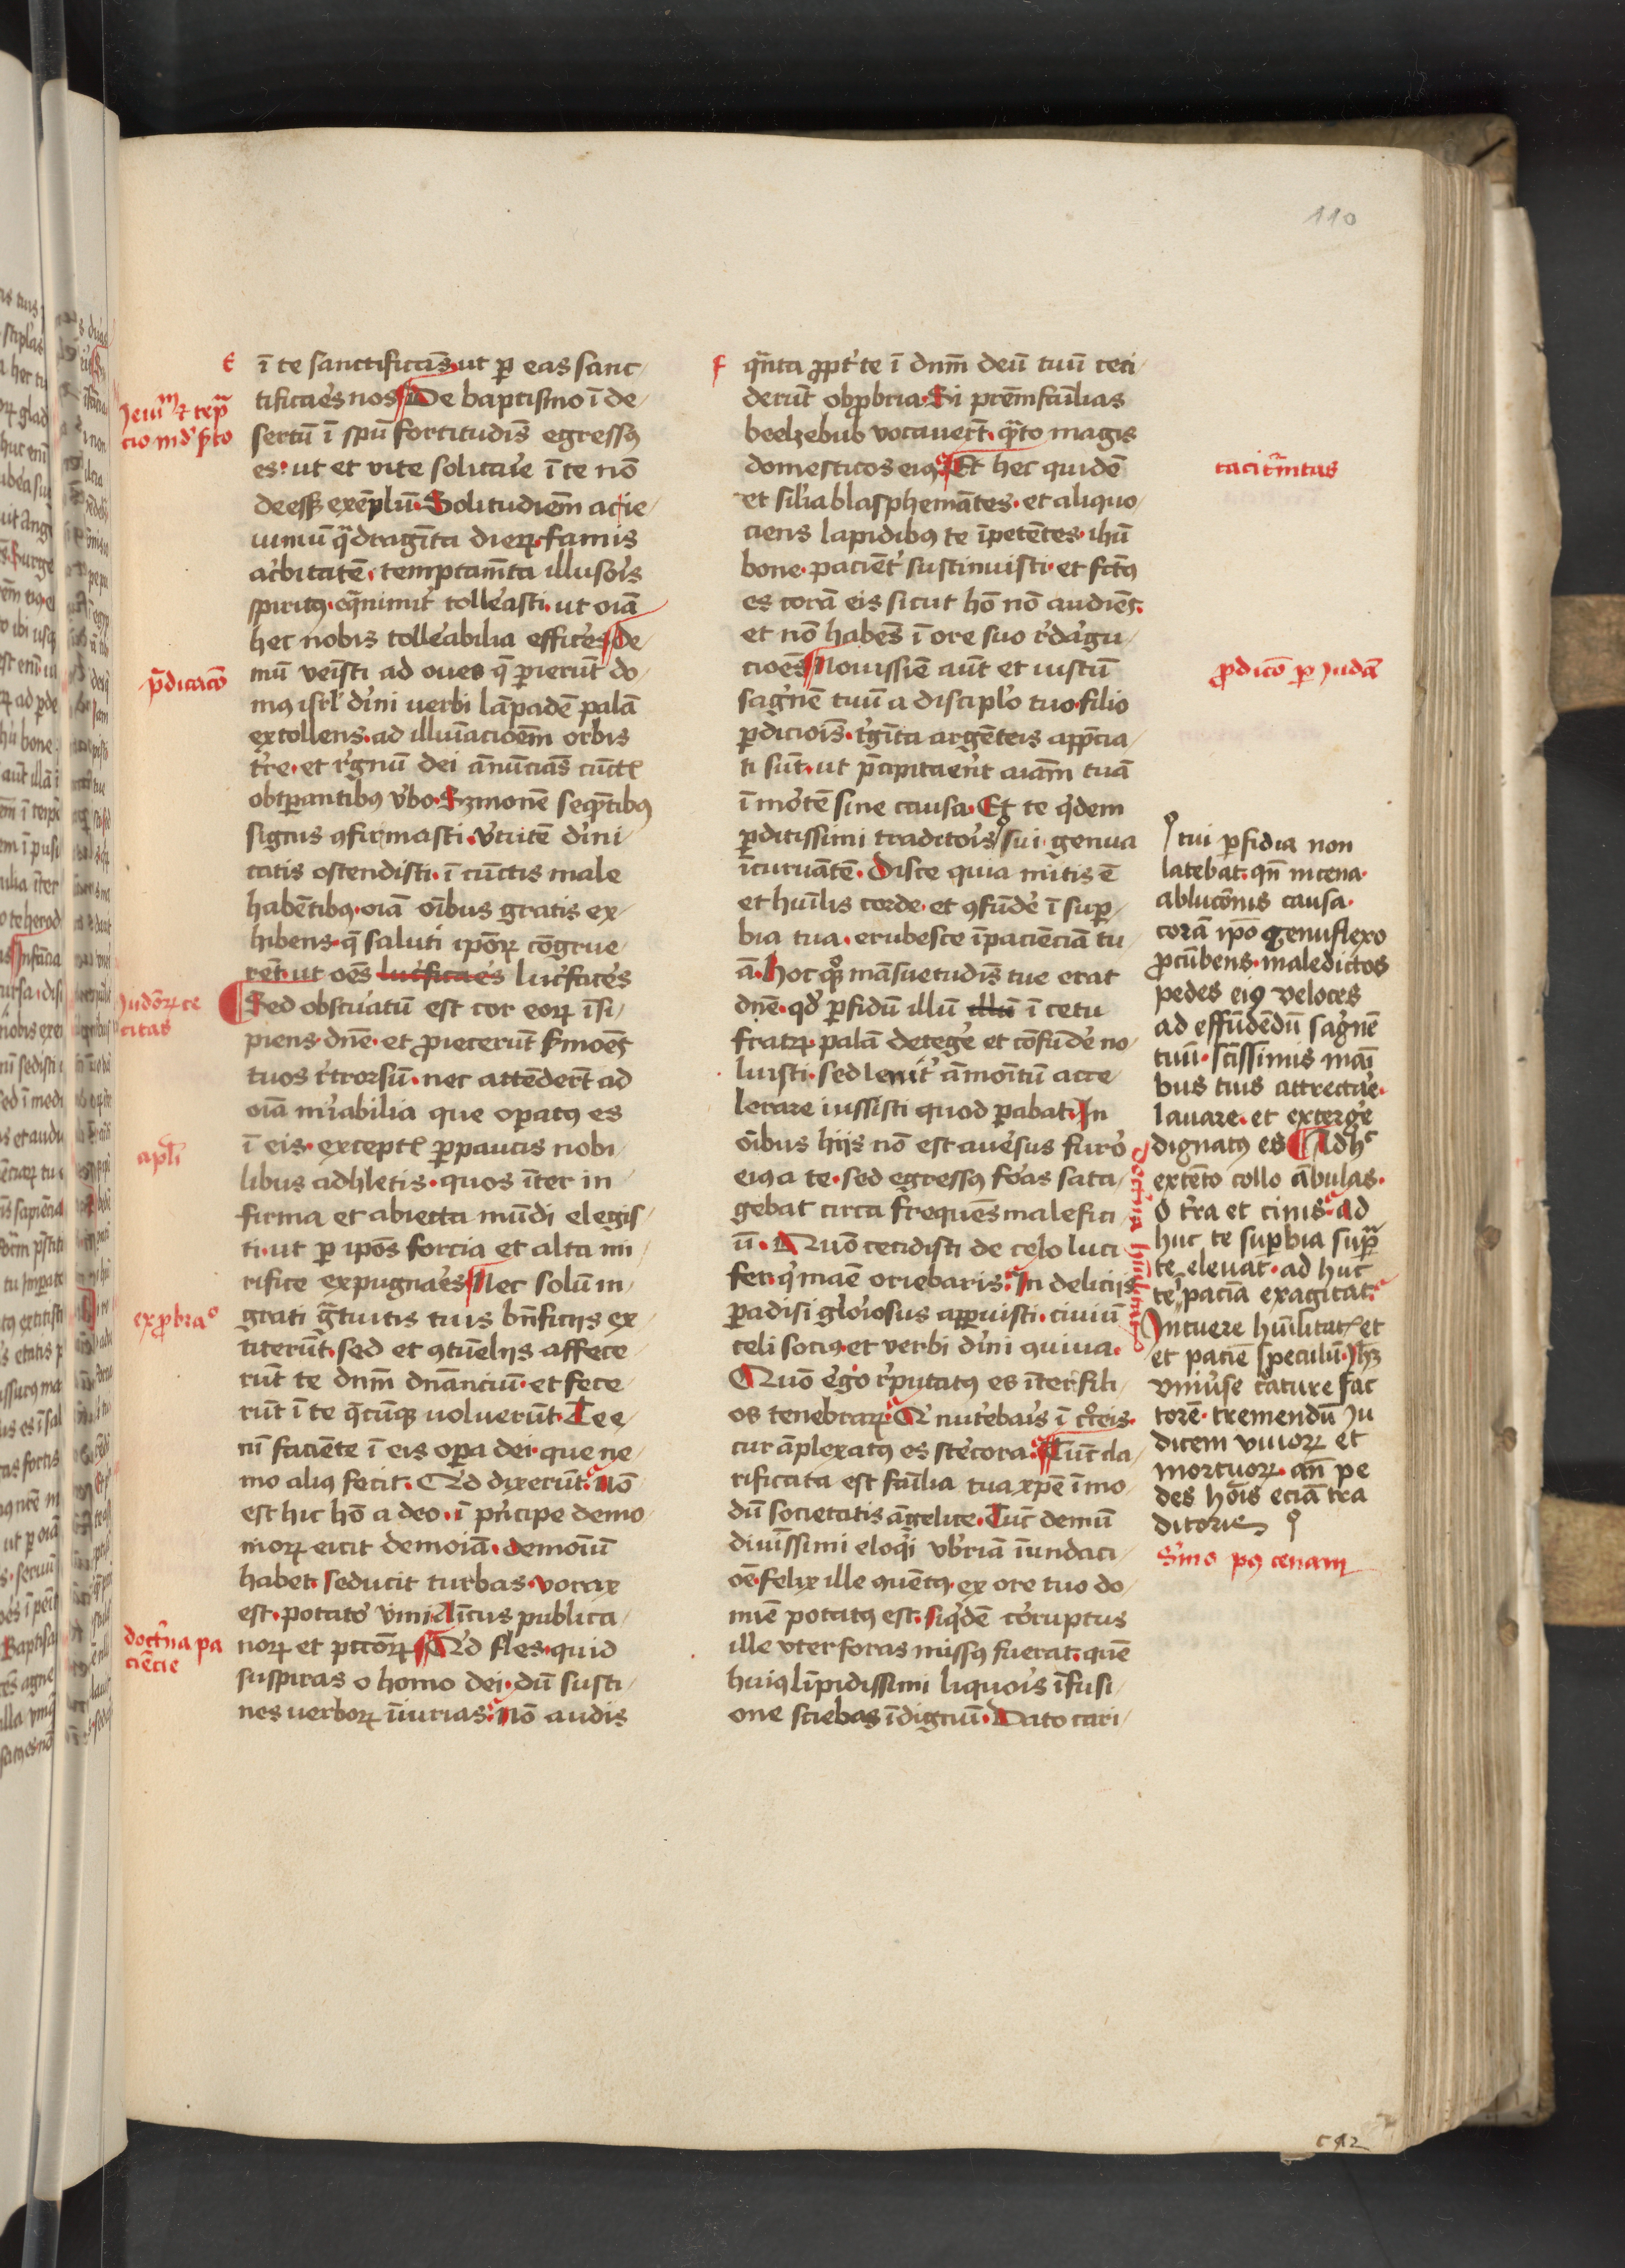 110
E
ī te sanctificās ut ꝑ eas sanc
tificares nos De baptismo ī de
sertū ī spū fortitudīs egressꝰ
es ut et vite solitarie ī te nō
deesset exēplū Solitudiēm ac ie
iuniū q̄dragīta dierꝝ famis
acbitatē temptamīta illusoīs
spiritꝰ eq̄nimit tolleasti ut oīa
hec nobis tolleabilia effices de
mū venisti ad oues q̄ perierūt do
mꝰ isrl dīni uerbi lāpadē palā
extollens ad illuīacioēm orbis
tre et regnū dei ānūciās cūctꝭ
obtperantibꝰ vbo Smonē seq̄tibꝰ
signis ꝯfirmasti virtutē dīni
tatis ostendisti ī cūctis male
habētibꝰ oīa oībus gratis ex
hibens q̄ saluti ipōꝝ cōgrue
rēt ut oēs lucrificares lucfaces
Sed obscuratū est cor eorꝝ īsi
piens dn̄e et ꝓiecerūt smoēs
tuos retrorsū nec attēderēt ad
oīa mirabilia que operatꝰ es
ī eis exceptꝭ ꝑpaucis nobi
libus adhletis quos īter in
firma et abiecta mūdi elegis
ti ut ꝑ ipōs forcia et alta mi
rifice expugnares Nec solū in
grati gratuitis tuis bn̄ficiis ex
titerūt sed et ꝯtūeliis affece
rūt te dnm̄ dn̄anciū et fece
rūt ī te q̄cūqꝫ uoluerūt Te e
nī faciēte ī eis oꝑa dei que ne
mo aliꝰ fecit Qd dixerūt Nō
est hic hō a deo ī prīcipe demo
niorꝝ eicit demoīa demoīū
habet seducit turbas vorax
est potator vini Amicus publica
norꝝ et pctōrꝝ Qd fles quid
suspiras o homo dei dū susti
nes uerborꝝ īiurias Nō audis
Ieiuniū et tēpta
cio in deserto
p̄dicacō
Iudeorꝝ ce
citas
apli
exprobrao
doctrina pa
ciētie
F
q̄nta ꝓpt te ī dnm̄ deū tuū ceci
derūt obprobria Si prēmfāilias
beelzebub vocauerūt q̄nto magis
domesticos eiꝰ Et hec quidē
et similia blasphemātes et aliquo
ciens lapidibꝰ te īpetētes ihū
bone pacient sustinuisti et fctꝰ
es corā eis sicut hō nō audiēs
et nō habēs ī ore suo redargu
cioēs Nouissīe aūt et iustū
sagnē tuū a disciplo tuo filio
ꝑdicioīs trigīta argēteis app̄cia
ti sūt ut p̄cipitarēt aīam tuā
ī mortē sine causa Et te qdem
ꝑditissimi traditoris sui genua
īcuruātē Disce quia mitis ē
et huīlis corde et ꝯfūde ī super
bia tua erubesce īpaciēciā tu
ā Hoc quoqꝫ māsuetudīs tue erat
dn̄e qd ꝑfidū illū illū ī cetu
fratrꝝ palā detege et cōfūde no
luisti sed lenit āmoītū acce
lerare iussisti quod parabat In
oībus hiis nō est auersus furor
eiꝰ a te sed egressꝰ foras sata
gebat circa frequēs malefici
ū Quō cecidisti de celo luci
fer q mane oriebaris In deliciis
paradisi gloriosus apparuisti ciuiū
celi sociꝰ et verbi dīni ꝯuiua
Quō ergo reputatꝰ es īter fili
os tenebrarꝝ Qi nutriebaris ī croceis
cur āplexatꝰ es stercora Tūc cla
rificata est familia tua xpe ī mo
dū societatis āgelice Tūc demū
diuīssimi eloqui vberiā īundaci
oē felix ille ꝯuētꝰ ex ore tuo do
mīe potatꝰ est siqdē corruptus
ille vter foras missꝰ fuerat quē
huiꝰ līpidissimi liquoris īfusi
one sciebas īdignū Dato cari
tacitrnitas
ꝓdicō ꝑ Iudā
tui perfidia non
latebat qn̄ in cena
ablucōnis causa
corā ipō genuflexo
ꝓcūbens maledictos
pedes eiꝰ veloces
ad effūdēdū sagnē
tuū scissimis mai
bus tuis attrectare
lauare et exterge
dignatꝰ es Adhc
extēto collo ābulas
O terra et cinis ad
huc te superbia supra
te eleuat ad huc
te īpaciēcia exagitat
Intuere huīlitatꝭ et
et paciēcie speculū Ihm
vniuerse creature fac
torē tremendū Iu
dicem viuorꝝ et
mortuorꝝ an̄ pe
des hoīs eciā tra
ditoris
Smo pꝰ cenam